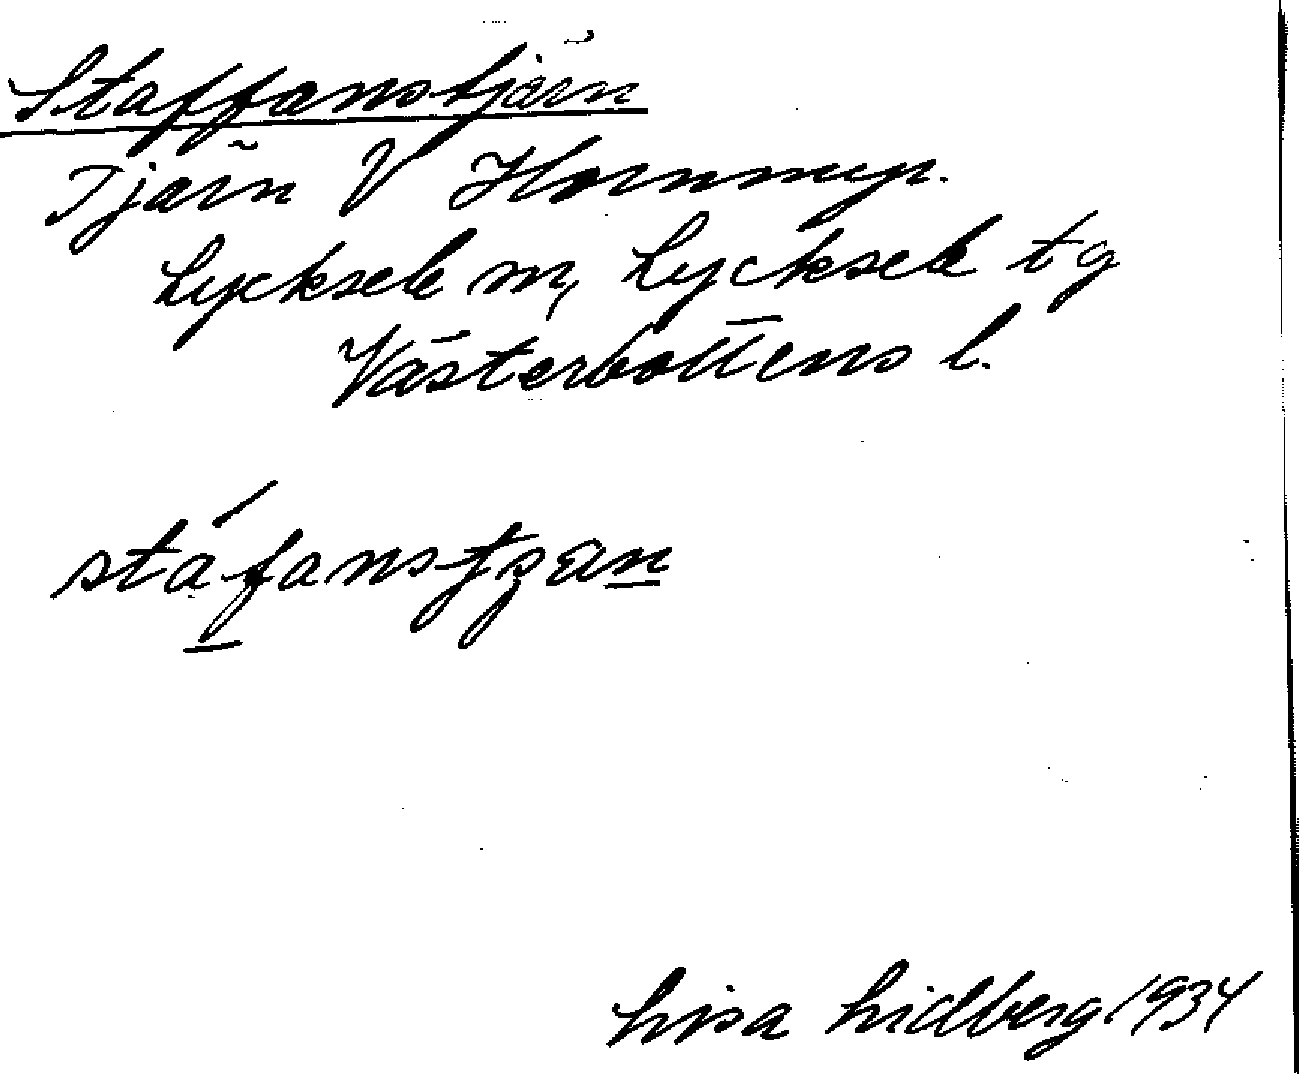 Staffanstjärn
Tjärn V Hornmyr.
Lycksele m, Lycksele tg
Västerbottens l.
stáfanstʒæn
Lisa Lidberg 1934